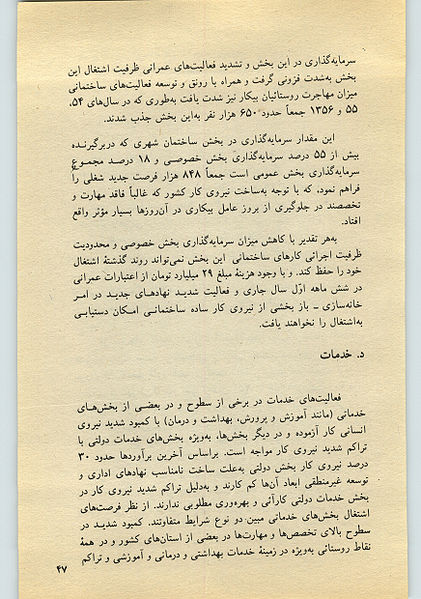 سرمایه‌گذاری در این بخش و تشدید فعالیت‌های عمرانی ظرفیت اشتغال این
بخش به‌شدت فزونی گرفت و همراه با رونق و توسعه فعالیت‌های ساختمانی
میزان مهاجرت روستائیان بیکار نیز شدت یافت به‌طوری که در سال‌های ۵۴،
۵۵ و ۱۳۵۶ جمعاً حدود ۶۵۰ هزار نفر به‌این بخش جذب شدند.
این مقدار سرمایه‌گذاری در بخش ساختمان شهری که دربرگیرنده
بیش از ۵۵ درصد سرمایه‌گذاری بخش خصوصی و ۱۸ درصد مجموع
سرمایه‌گذاری بخش عمومی است جمعاً ۸۴۸ هزار فرصت جدید شغلی را
فراهم نمود، که با توجه به‌ساخت نیروی کار کشور که غالباً فاقد مهارت و
تخصصند در جلوگیری از بروز عامل بیکاری در آن‌روزها بسیار مؤثر واقع
افتاد.
به‌هر تقدیر با کاهش میزان سرمایه‌گذاری بخش خصوصی و محدودیت
ظرفیت اجرائی کارهای ساختمانی این بخش نمی‌تواند روند گذشتهٔ اشتغال
خود را حفظ کند. و با وجود هزینهٔ مبلغ ۲۹ میلیارد تومان از اعتبارات عمرانی
در شش ماهه اوّل سال جاری و فعالیت شدید نهادهای جدید در امر
خانه‌سازی ـ باز بخشی از نیروی کار ساده ساختمانی امکان دستیابی
به‌اشتغال را نخواهند یافت.
د. خدمات
فعالیت‌های خدمات در برخی از سطوح و در بعضی از بخش‌های
خدماتی (مانند آموزش و پرورش، بهداشت و درمان) با کمبود شدید نیروی
انسانی کار آزموده و در دیگر بخش‌ها، به‌ویژه بخش‌های خدمات دولتی با
تراکم شدید نیروی کار مواجه است. براساس آخرین برآوردها حدود ۳۰
درصد نیروی کار بخش دولتی به‌علت ساخت نامناسب نهادهای اداری و
توسعه غیرمنطقی ابعاد آن‌ها کم کارند و به‌دلیل تراکم شدید نیروی کار در
بخش خدمات دولتی کارآئی و بهره‌وری مطلوبی ندارند. از نظر فرصت‌های
اشتغال بخش‌های خدماتی مبین دو نوع شرایط متفاوتند. کمبود شدید در
سطوح بالای تخصص‌ها و مهارت‌ها در بعضی از استان‌های کشور و در همهٔ
نقاط روستائی به‌ویژه در زمینهٔ خدمات بهداشتی و درمانی و آموزشی و تراکم
۴۷